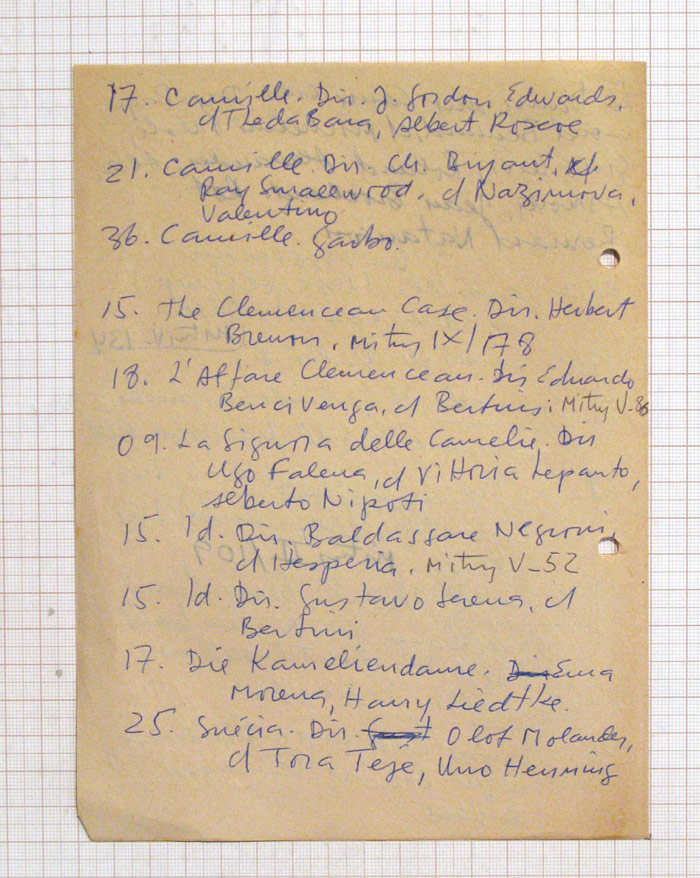 17. Camille. Dir. J. Gordon Edwards,
c/ Theda Bara, Albert Roscoe
21. Camille. Dir. Ch. Bryant,
Ray Smallwood. c/ Nazimova,
Valentino
36. Camille. Garbo.
15. The Clemenceau Case. Dir. Herbert
Brenon. Mitry IX/178
18. L'Affare Clemenceau. Dir Eduardo
Bencivenga, c/ Bertini; Mitry V-86
09. La Signora delle Camelie. Dir
Ugo Falena, c/ Vittoria Lepanto,
Alberto Nipoti
15. Id. Dir. Baldassare Negroni,
c/ Hesperia. Mitry V-52
15. Id. Dir. Gustavo Serena, c/
Bertini
17. Die Kameliendame. Dir Erna
Morena, Harry Liedtke.
25. Suécia. Dir. Olof Molander,
c/ Tora Teje, Uno Henning